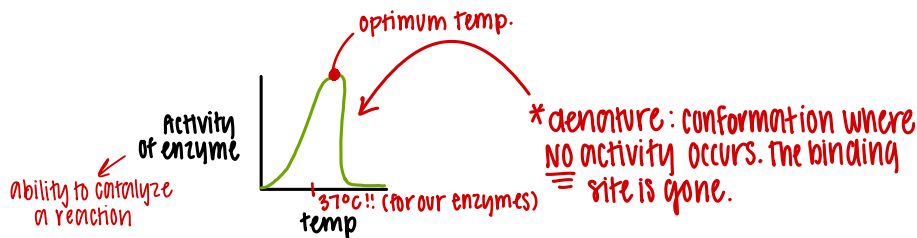 optimum temp.
Activity
of enzyme
ability to catalyze
a reaction
37°C!! (for our enzymes)
temp
* denature: conformation where
NO activity occurs. The binding
site is gone.